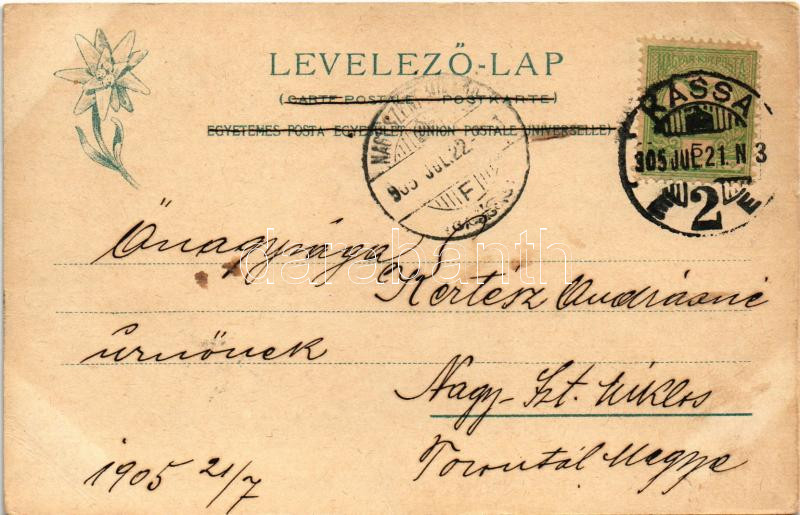 LEVELEZŐ-LAP
(CARTE POSTALE POSTKARTE)
EGYETEMES POSTA EGYESÜLET (UNION POSTALE UNIVERSELLE)
MAGYAR KIR. POSTA
KASSA
905 JUL. 21. N 3
2
905 JUL. 22.
F
Önagysága
Kertész Andrásné
úrnőnek
Nagy-Szt. Miklos
Torontál Megye
1905 21/7
darabanth